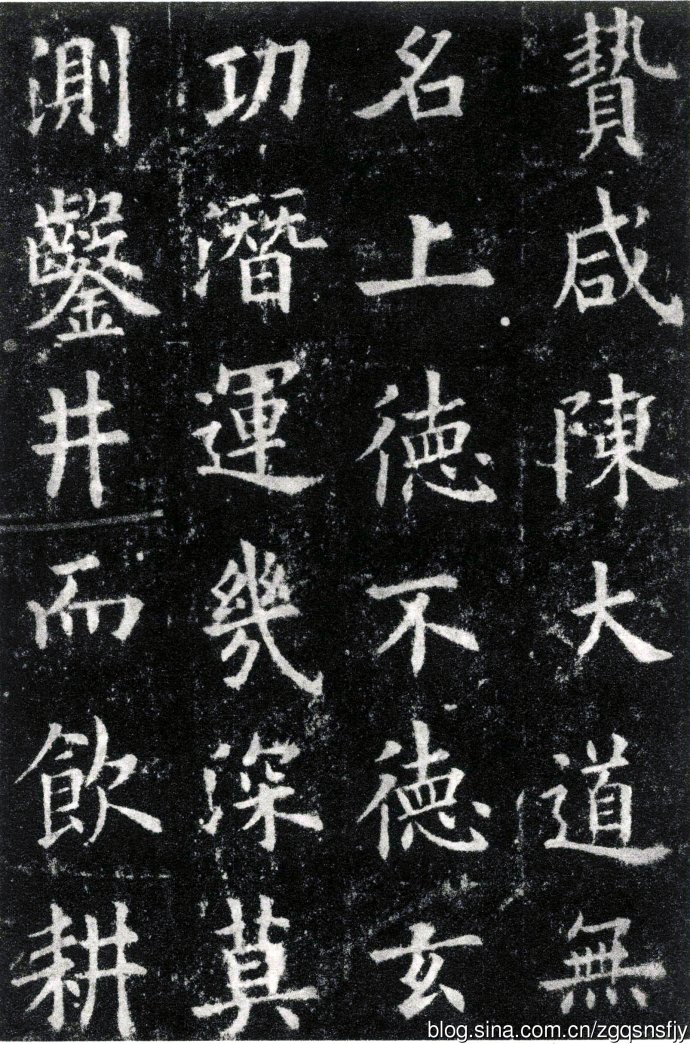 贄咸陳大道無
名上徳不徳玄
功潛運幾深莫
測鑿井而飲耕
blog.sina.com.cn/zgqsnsfjy